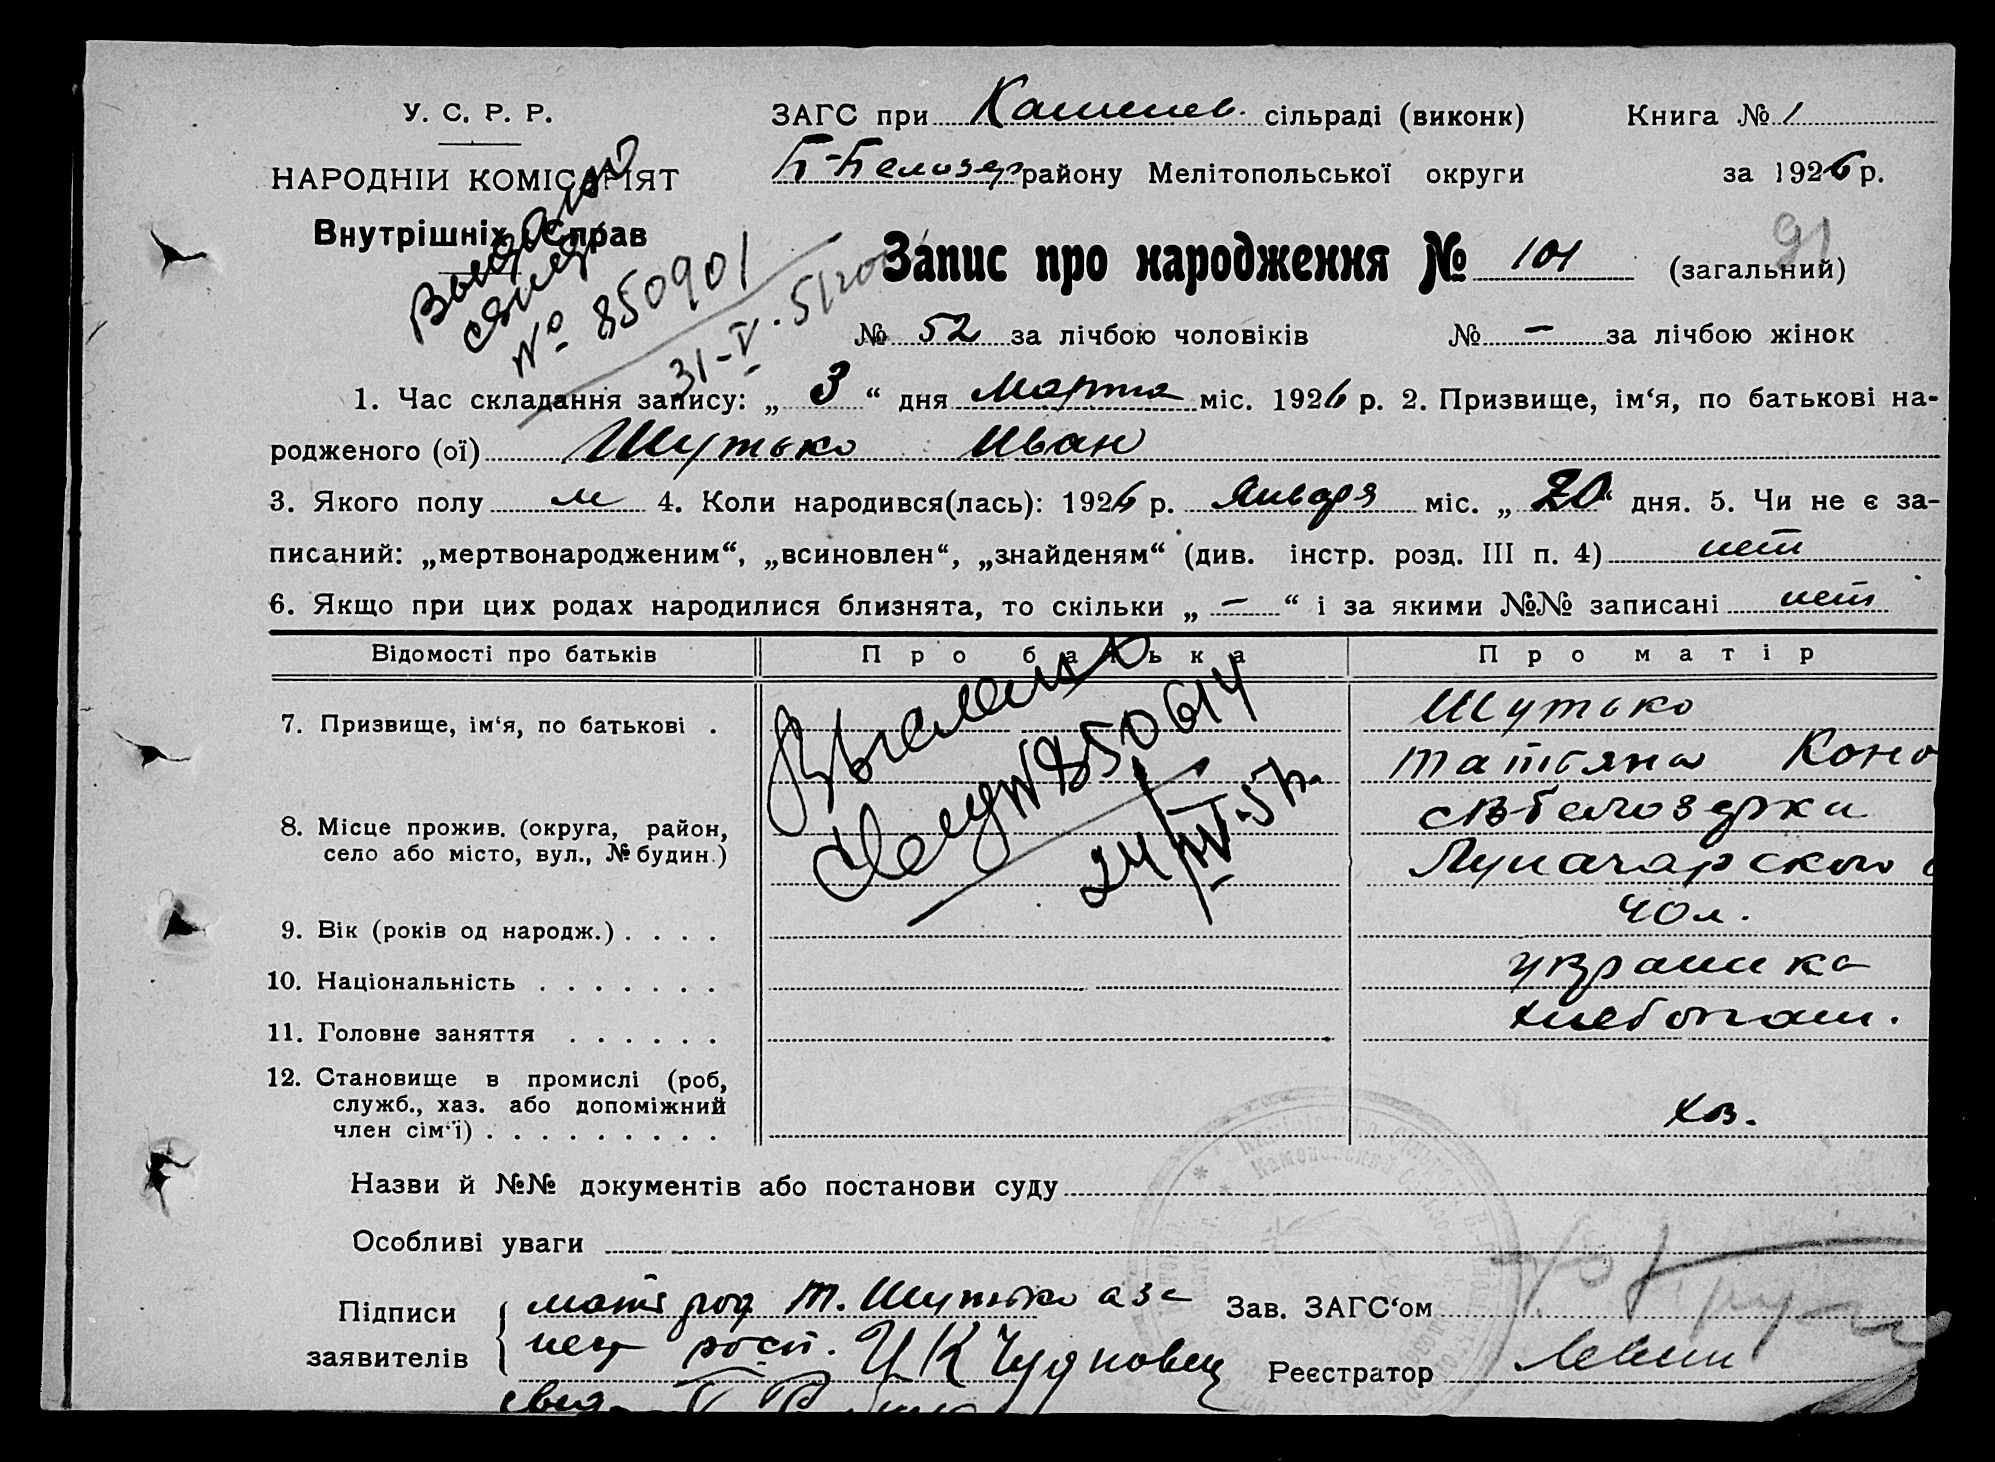 У. С. Р. Р.
НАРОДНІЙ КОМІСАРІЯТ
Внутрішніх Справ
№ 850901
31-V. 51
ЗАГС при Камен. сільраді (виконк)
Книга № 1
Б-Белозер району Мелітопольської округи
за 1926 р.
91
Запис про народження № 101 (загальний)
№ 52 за лічбою чоловіків № — за лічбою жінок
1. Час складання запису: „ 3 “ дня Марта міс. 1926 р. 2. Призвище, ім‘я, по батькові на-
родженого (ої) Шутько Иван
3. Якого полу м 4. Коли народився(лась): 1926 р. Января міс. „ 20 “ дня. 5. Чи не є за-
писаний: „мертвонародженим“, „всиновлен“, „знайденям“ (див. інстр. розд. III п. 4) нет
6. Якщо при цих родах народилися близнята, то скільки „ — “ і за якими №№ записані нет
Відомості про батьків
Про батька
Про матір
7. Призвище, ім‘я, по батькові .
Шутько
Татьяна Коно
№ 850614
24/IV-51г.
8. Місце прожив. (округа, район,
село або місто, вул., № будин.)
Белозерки
Луначарского
9. Вік (років од народж.) . . . .
40 л.
10. Національність . . . . . . .
украинка
11. Головне заняття . . . . . .
хлебопаш.
12. Становище в промислі (роб,
служб., хаз. або допоміжний
член сім‘ї) . . . . . . . . .
хоз.
Назви й №№ документів або постанови суду
Особливі уваги
Підписи
заявителів
мать Т. Шутько а за
нег росп. И К Чудновец
Зав. ЗАГС‘ом
Реєстратор